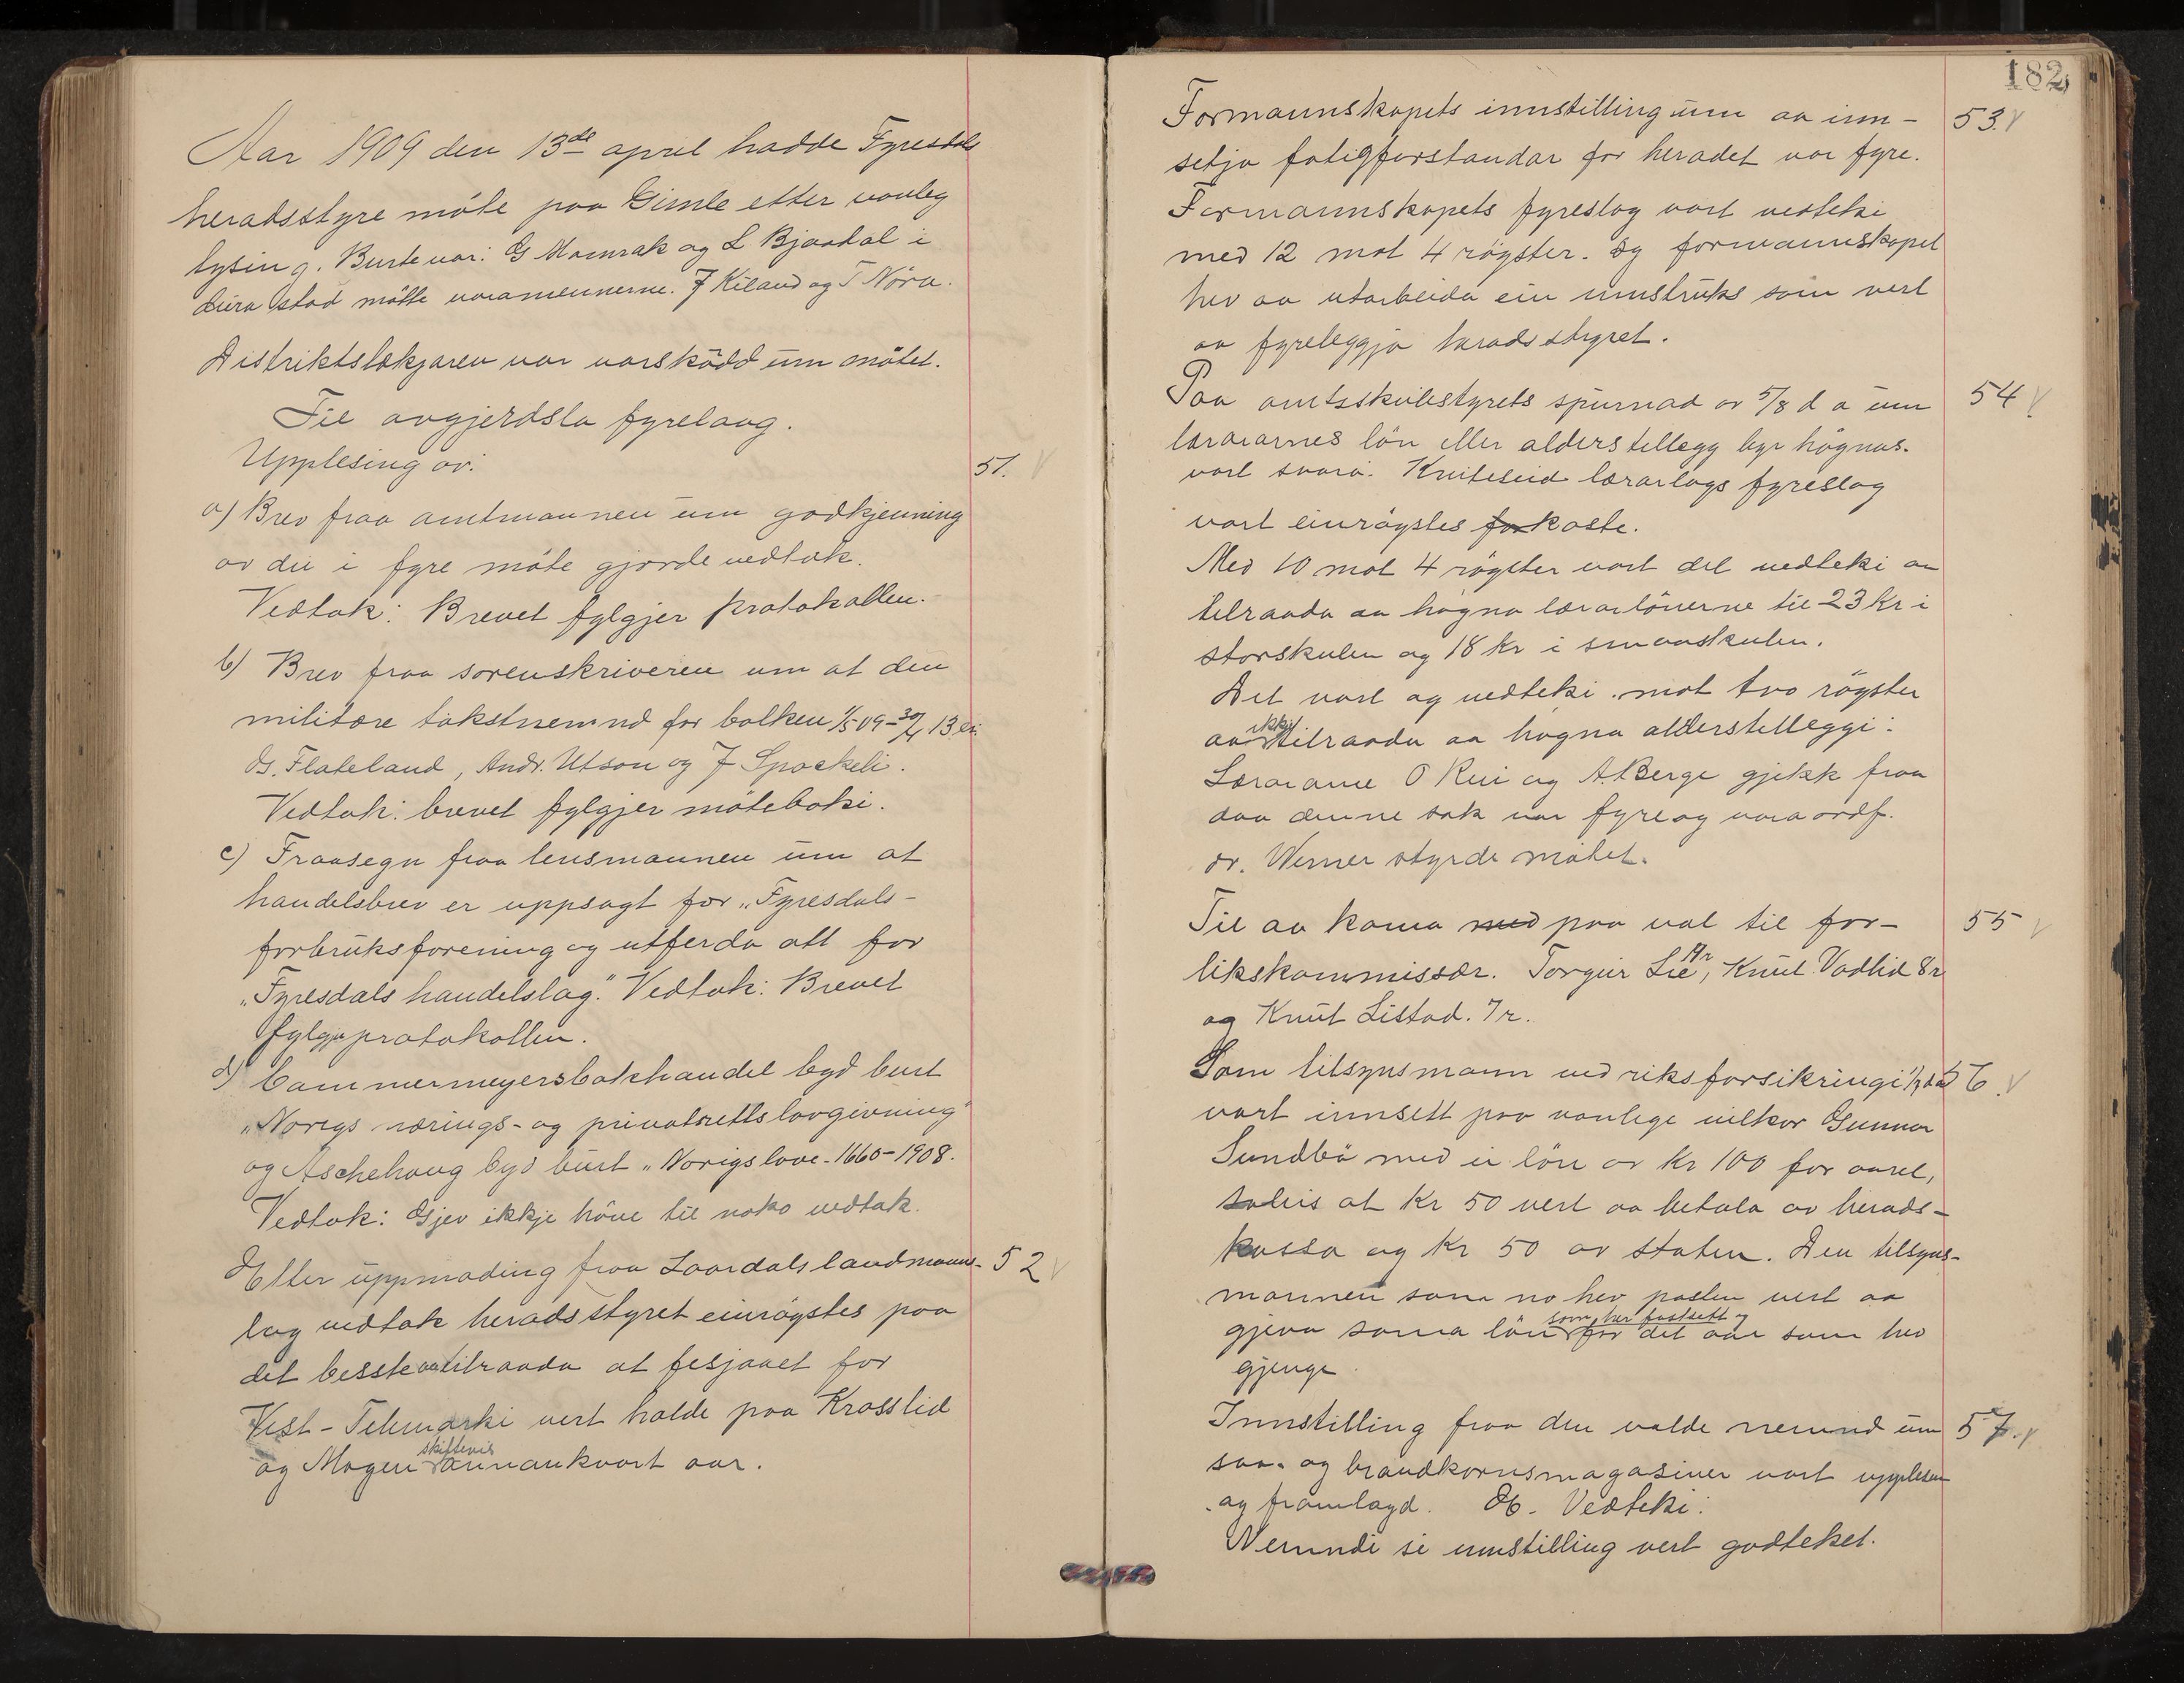 Aar 1909 den 13de april hadde Fyresdals
heradsstyre möte paa Gimle etter vanleg
lysing. Burte var: G Momrak og L Bjaadal i
deira stad mötte varamennerne. J Kiland og T Nöra.
Distriktslækjaren var varsködd um mötet.
Til avgjerdsla fyrelaag.
Upplesing av: 51.
a) Brev fraa amtmannen um godkjenning
av dei i fyre möte gjorde vedtak.
Vedtak: Brevet fylgjer protokollen.
b) Brev fraa sorenskriveren um at den
militære takstnemnd for bolken 1/5 09 - 30/4 13 er:
G. Flateland, Andr. Utson og J Spockeli.
Vedtak: brevet fylgjer möteboki.
c) Fraasegn fraa lensmannen um at
handelsbrev er uppsagt for „Fyresdals-
forbruksforening og utferda att for
„Fyresdals handelslag." Vedtak: Brevet
fylgje protokollen.
d) Cammermeyers bokhandel byd burt
„Norigs nærings- og privatrettslovgivning"
og Aschehoug byd burt „Norigs love - 1660-1908.
Vedtak: Gjev ikkje höve til noko vedtak.
Etter uppmoding fraa Laardals landmanns- 52
lag vedtok heradsstyret einrögstes paa
det besste aa tilraada at fesjaaet for
Vest-Telemarki vert halde paa Krosslid
og Mogen skiftevis annankvart aar.
182
Formannskapets innstilling um aa inn- 53.
setja fatigforstandar for heradet var fyre.
Formannskapets fyreslag vart vedteki
med 12 mot 4 rögster. Og formannskapet
hev aa utarbeida ein innstruks som vert
aa fyreleggja heradsstyret.
Paa amtsskulestyrets spurnad av 5/8 d a um 54
lærararnes lön eller alderstillegg byr högnas.
vart svara: Kviteseid lærarlags fyreslag
vart einrögstes forkaste.
Med 10 mot 4 rögster vart det vedteki aa
tilraada aa högna lærarlönerne til 23 Kr i
storskulen og 18 Kr i smaaskulen.
Det vart og vedteki mot tvo rögster
aa ikkje tilraada aa högna alderstilleggi:
Lærarane O Rui og A. Berge gjekk fraa
daa denne sak var fyre og varaordf.
dr. Werner styrde mötet.
Til aa koma med paa val til for- 55
likskommissær. Torgeir Lie, Knut Vadlid 8 r
og Knut Listad. 7 r.
Som tilsynsmann ved riksforsikringi 56.
vart innsett paa vanlege vilkor Gunnar
Sundbö med ei lön av Kr 100 for aaret,
soleis at Kr 50 vert aa betala av herads-
kassa og Kr 50 av staten. Den tilsyns-
mannen som no hev posten vert aa
gjeva sama lön som her fastsett for det aar som hev
gjenge.
Innstilling fraa den valde nemnd um 57.
saa- og braudkornsmagasiner vart upplesen
og framlagd. Vedteki:
Nemndi si innstilling vert godteket.